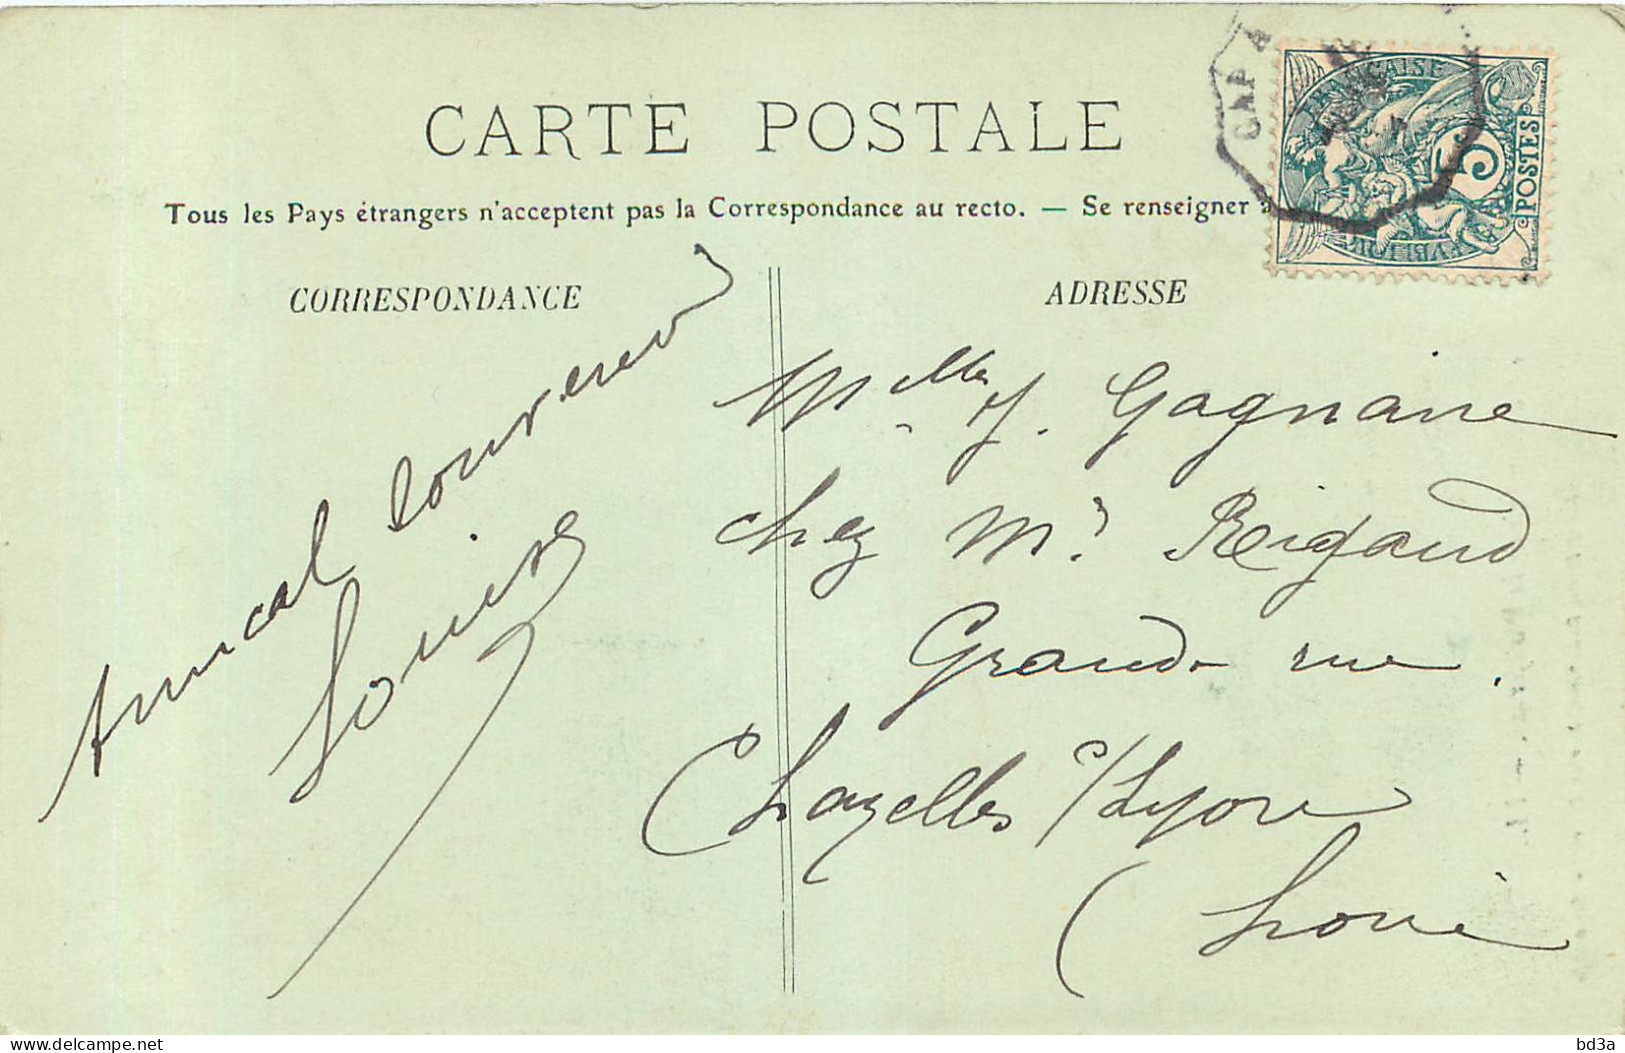 CARTE POSTALE
Tous les Pays étrangers n'acceptent pas la Correspondance au recto. — Se renseigner à
CORRESPONDANCE
ADRESSE
Amical souvenir
Louise
Melle J. Gagnaire
chez Mr Rigaud
Grande rue.
Chazelles s/Lyon
(Loire
GAP A
FRANÇAISE
5
POSTES
bd3a